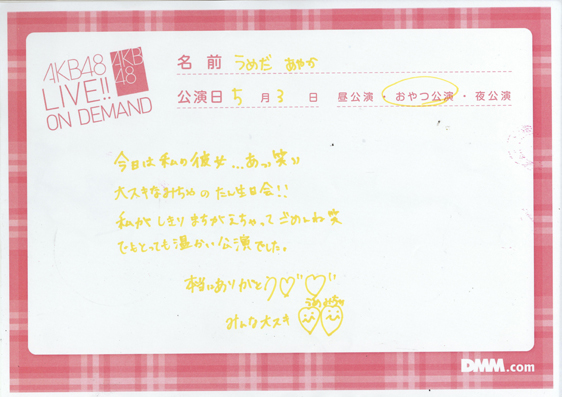 AKB48
LIVE!!
ON DEMAND
AKB
48
名前 うめだ あやか
公演日 5 月 3 日 昼公演・おやつ公演・夜公演
今日は私の彼女…あっ笑い
大スキなみちゃの たん生日会!!
私が しきり まちがえちゃって ごめんね 笑
でもとっても温かい公演でした。
本当にありがとう♡♡
みんな大スキ
DMM.com